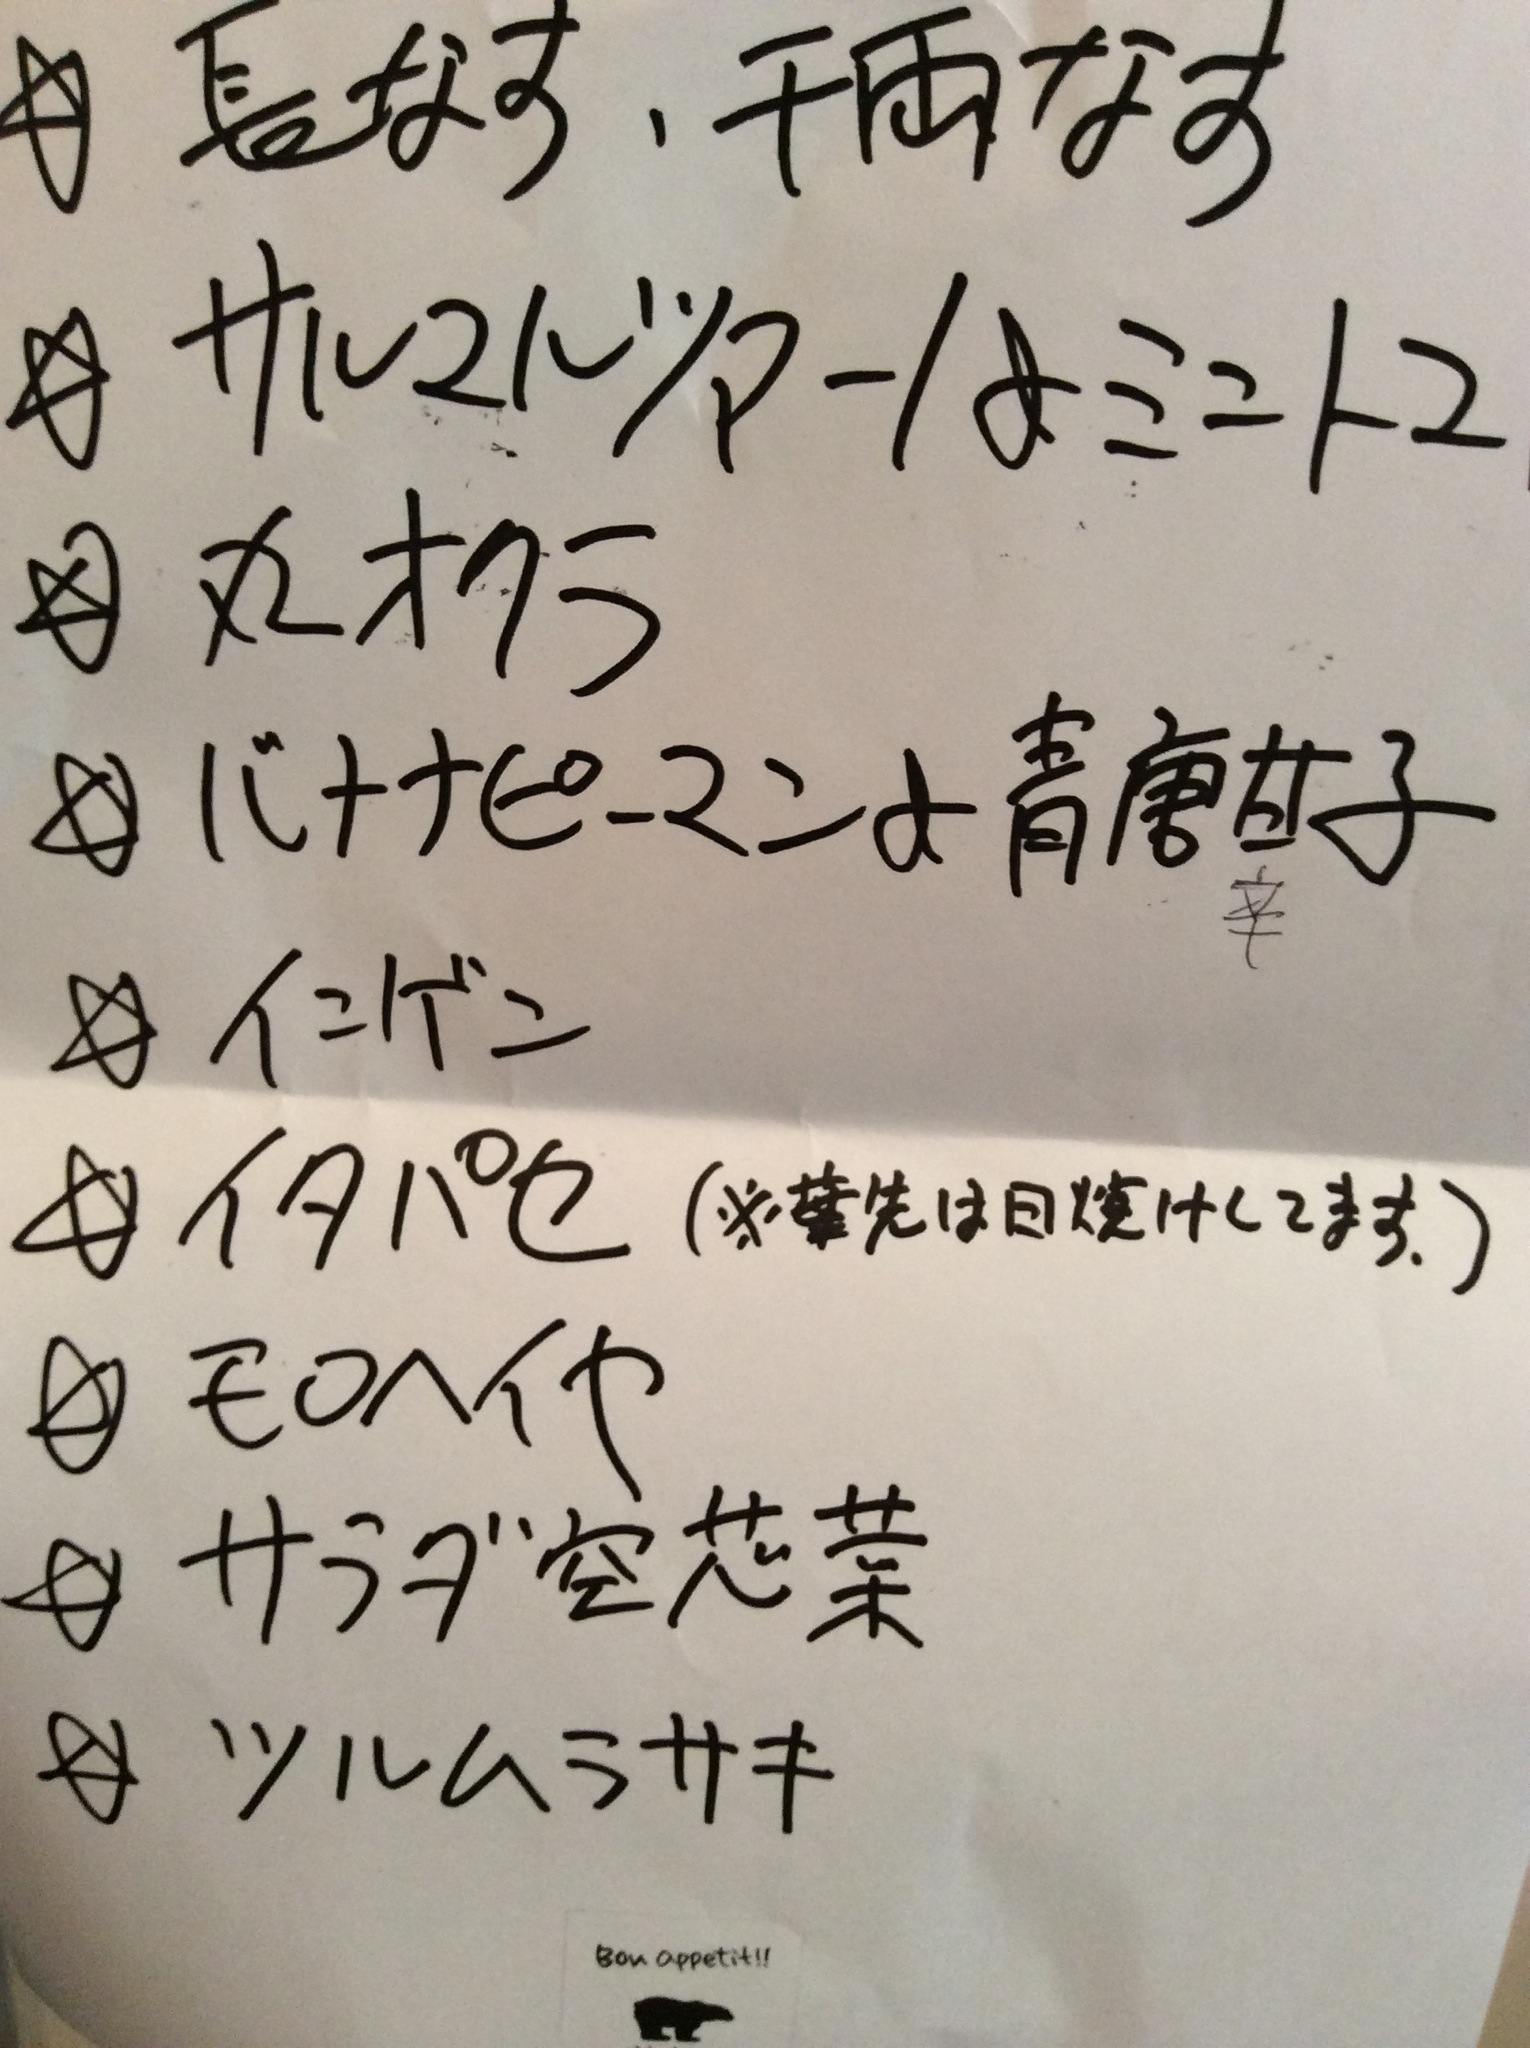 ☆ 長なす、千両なす
☆ サルマルツァーノ&ミニトマ
☆ 丸オクラ
☆ バナナピーマン&青唐甘子
辛
☆ インゲン
☆ イタパセ (※葉先は日焼けしてます。)
☆ モロヘイヤ
☆ サラダ空芯菜
☆ ツルムラサキ
Bon appetit!!